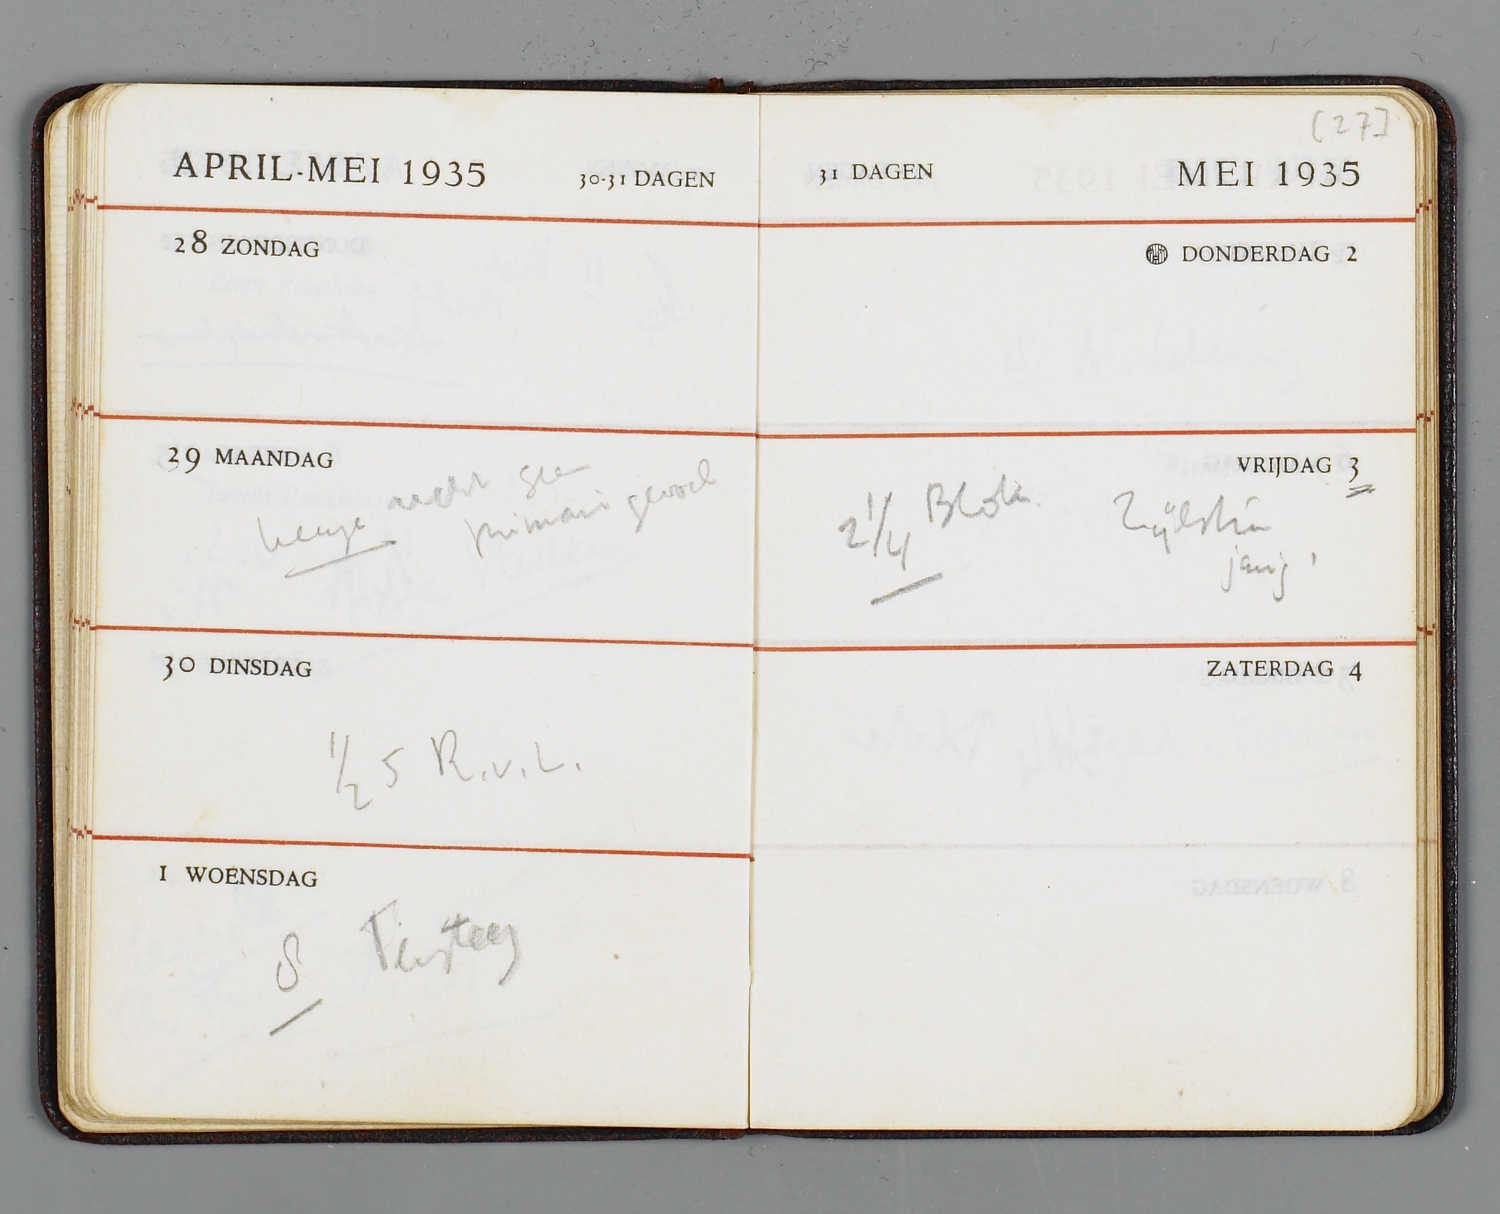 APRIL-MEI 1935 30-31 DAGEN
28 ZONDAG
29 MAANDAG
gevoel
30 DINSDAG
1/2 5 R.v.L.
1 WOENSDAG
8 Versteeg
[27]
31 DAGEN MEI 1935
DONDERDAG 2
VRIJDAG 3
2 1/4 Blok. Zijlstra
jarig!
ZATERDAG 4